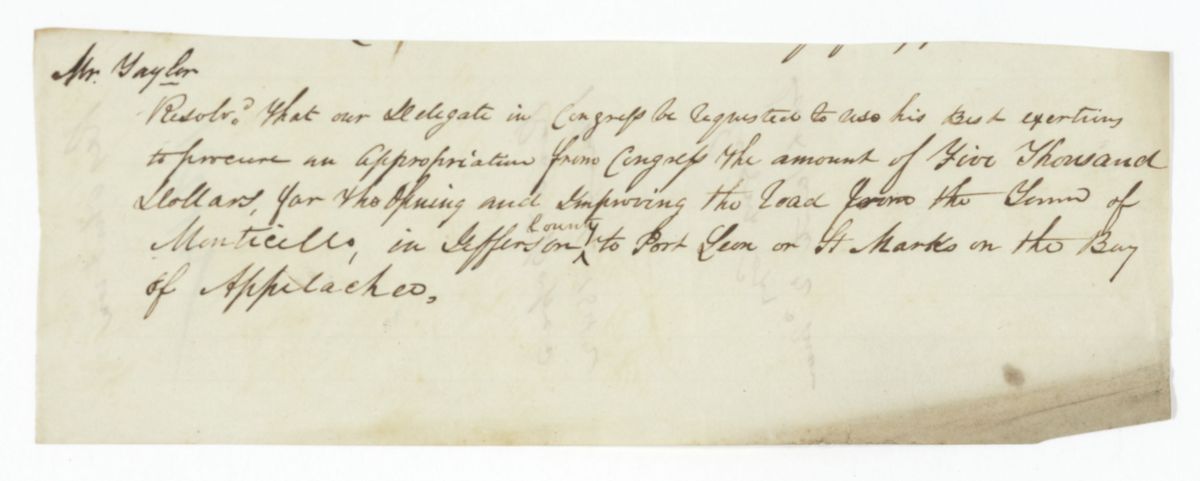 Mr. Taylor
Resolvd. That our Delegate in Congress be requested to use his best exertions
to procure an appropriation from Congress the amount of Five Thousand
Dollars, for the Opning and Improving the road from the Town of
Monticello, in Jefferson County to Port Leon or St Marks on the Bay
of Appelachee.